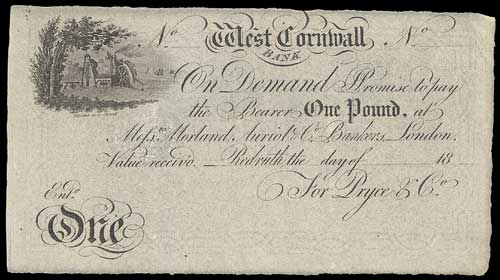 No West Cornwall No
BANK
On Demand I Promise to pay
the Bearer One Pound, at
Messrs Morland, Auriol & Co Bankers, London.
Value receivd. Redruth the day of 18
For Pryce & Co
Entd
One